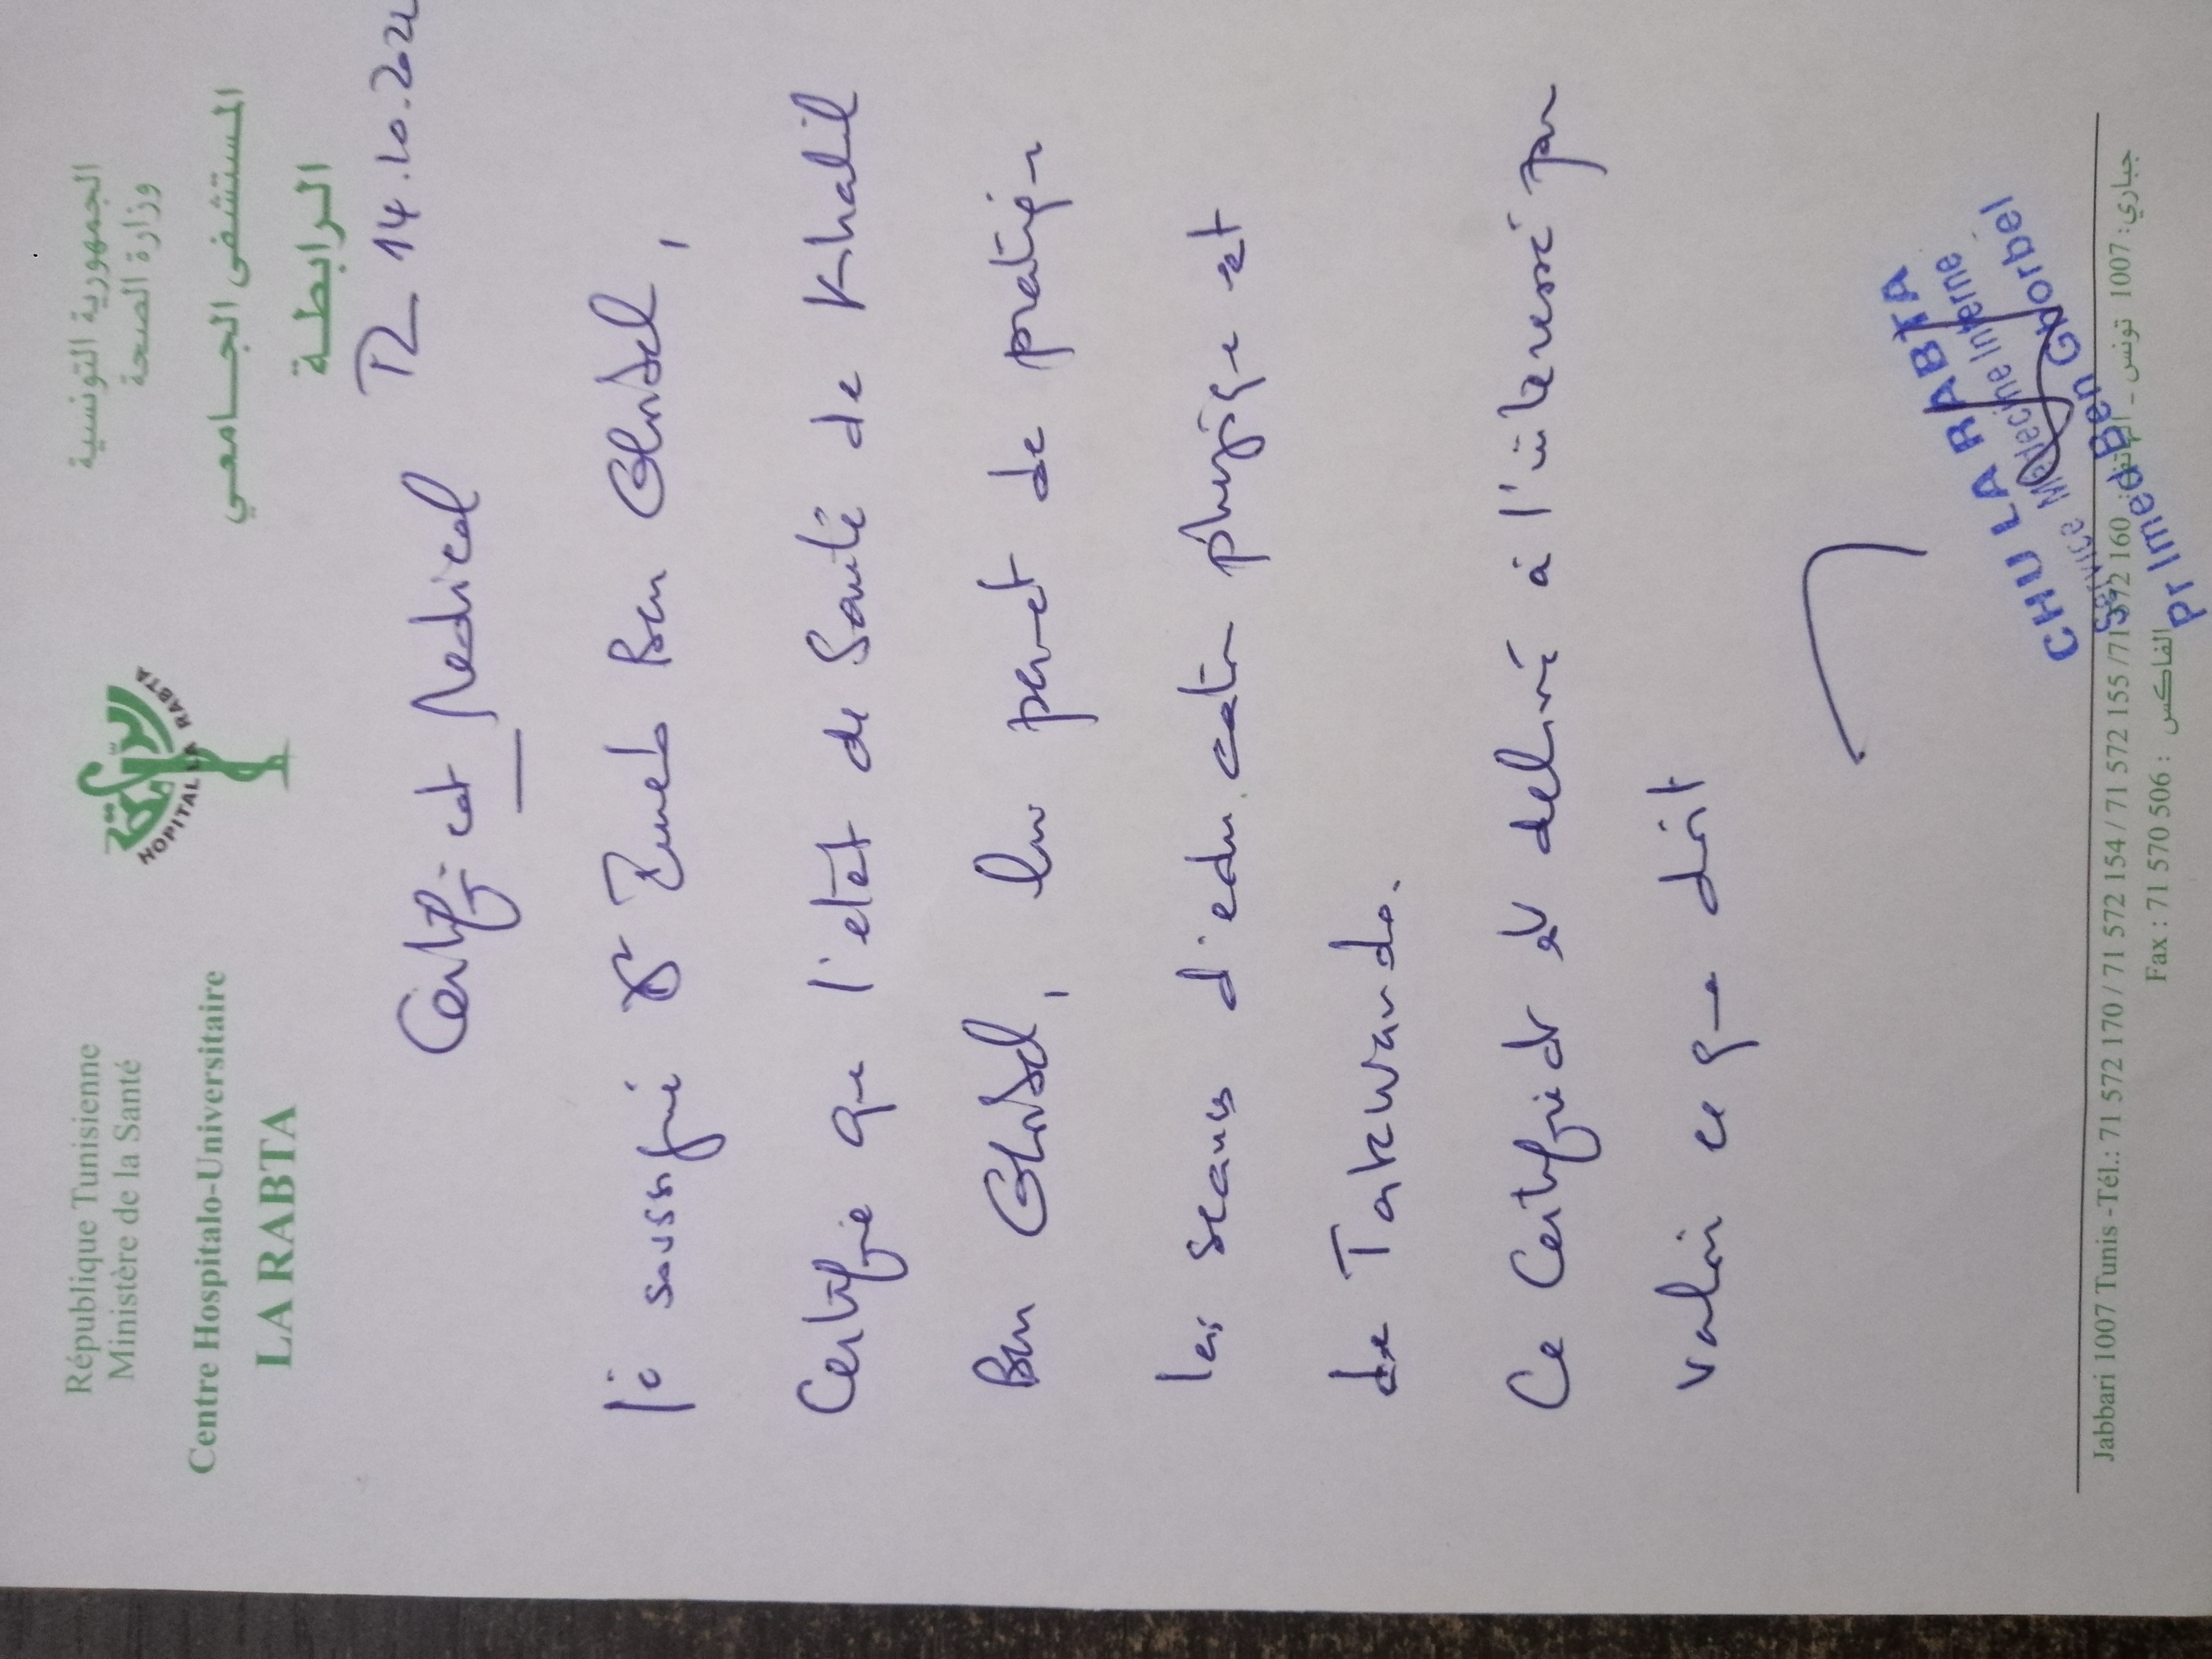 République Tunisienne
Ministère de la Santé
Centre Hospitalo-Universitaire
LA RABTA
HOPITAL LA RABTA
الجمهورية التونسية
وزارة الصحة
المستشفى الجامعي
الرابطة
14.10.202
Certificat Medical
Je soussigné Dr Zeineb Ben Ghorbel,
Certifie que l'etat de Santé de Khalil
Ben Ghorbel, lui permet de pratiquer
les seances d'education physique et
de Taekwando.
Ce Certificat est delivré à l'interessé pour
valoir ce que droit
CHU LA RABTA
Service Médecine Interne
Pr Imed Ben Ghorbel
Jabbari 1007 Tunis -Tél.: 71 572 170 / 71 572 154 / 71 572 155 /71 392 160 جباري: 1007 تونس - الهاتف
Fax : 71 570 506 : الفاكس